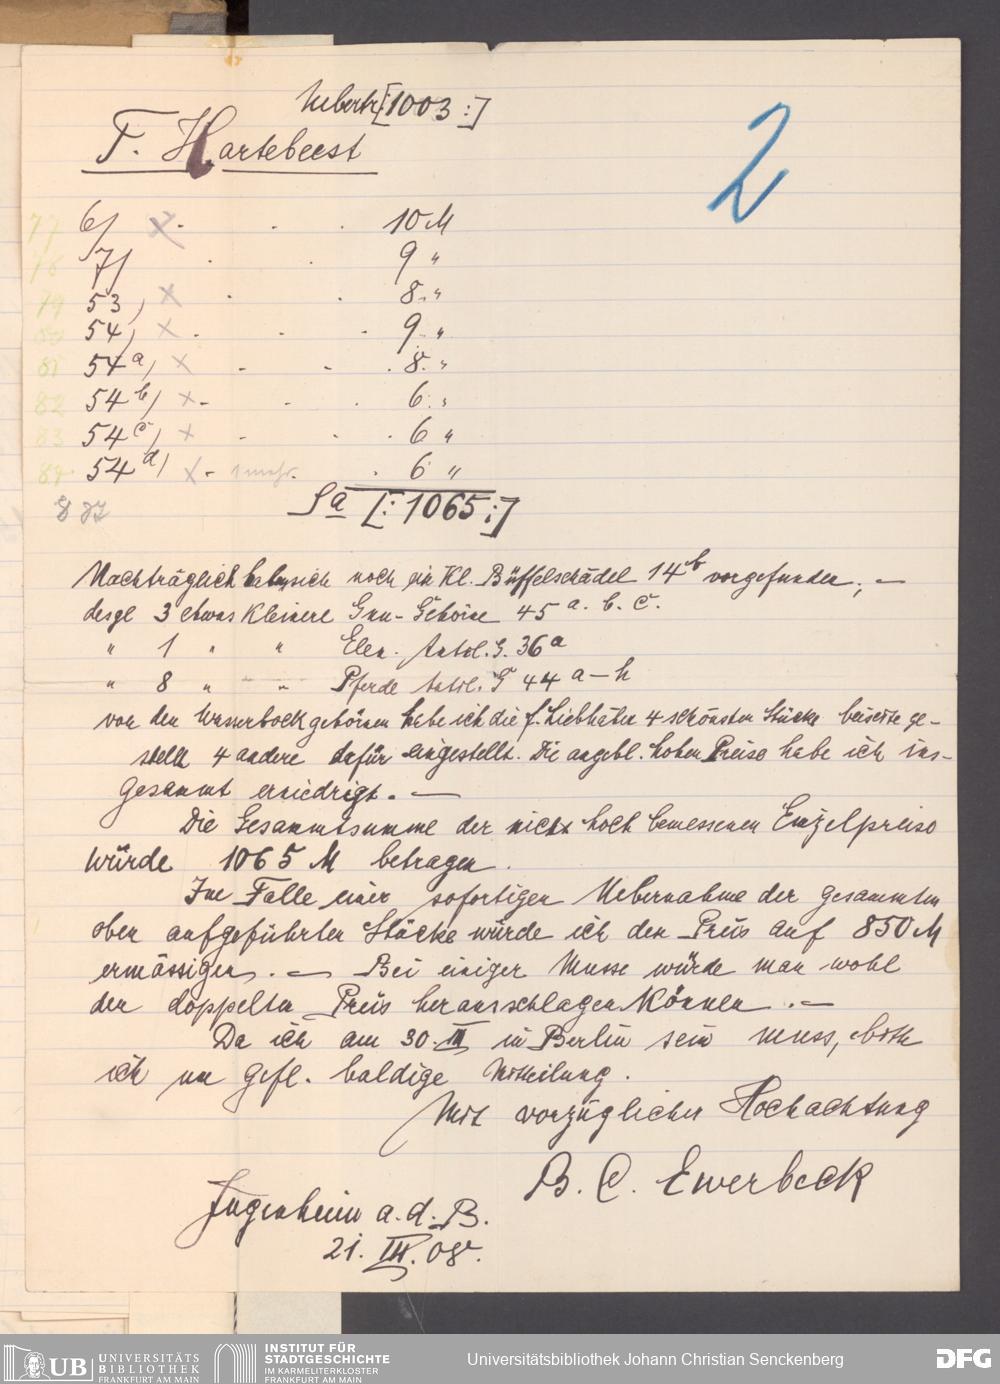 Uebertr. [:1003:]
2
F. Hartebeest
77 6/ x . . . 10 M
78 7/ . . 9 "
79 53, x . . 8. "
80 54, x . . . 9. "
81 54a, x . . . 8. "
82 54b/ x . . . 6. "
83 54c, x . . . 6 "
84 54d/ x . . 6 "
Sa [:1065:]
Nachträglich haben sich noch ein Kl. Büffelschädel 14b vorgefunden; —
desgl 3 etwas Kleinere Gnu-Gehörne 45 a. b. c.
" 1 " " Elen. Antil. G. 36a
" 8 " " Pferde Antil. G 44 a—h
von den Wasserbockgehörnen habe ich die f. Liebhaber 4 schönsten Stücke beiseite ge-
stellt 4 andere dafür eingestellt. Die angebl. hohen Preise habe ich ins-
gesammt erniedrigt. —
Die Gesammtsumme der nicht hoch bemessenen Einzelpreise
würde 1065 M betragen.
Im Falle einer sofortigen Uebernahme der gesammten
oben aufgeführten Stücke würde ich den Preis auf 850 M
ermässigen. — Bei einiger Musse würde man wohl
den doppelten Preis herausschlagen Können. —
Da ich am 30. III in Berlin sein muss, bitte
ich um gefl. baldige Mitteilung.
Mit vorzüglicher Hochachtung
B. C. Ewerbeck
Jugenheim a. d. B.
21. III. 08.
UB UNIVERSITÄTS
BIBLIOTHEK
FRANKFURT AM MAIN
INSTITUT FÜR
STADTGESCHICHTE
IM KARMELITERKLOSTER
FRANKFURT AM MAIN
Universitätsbibliothek Johann Christian Senckenberg
DFG